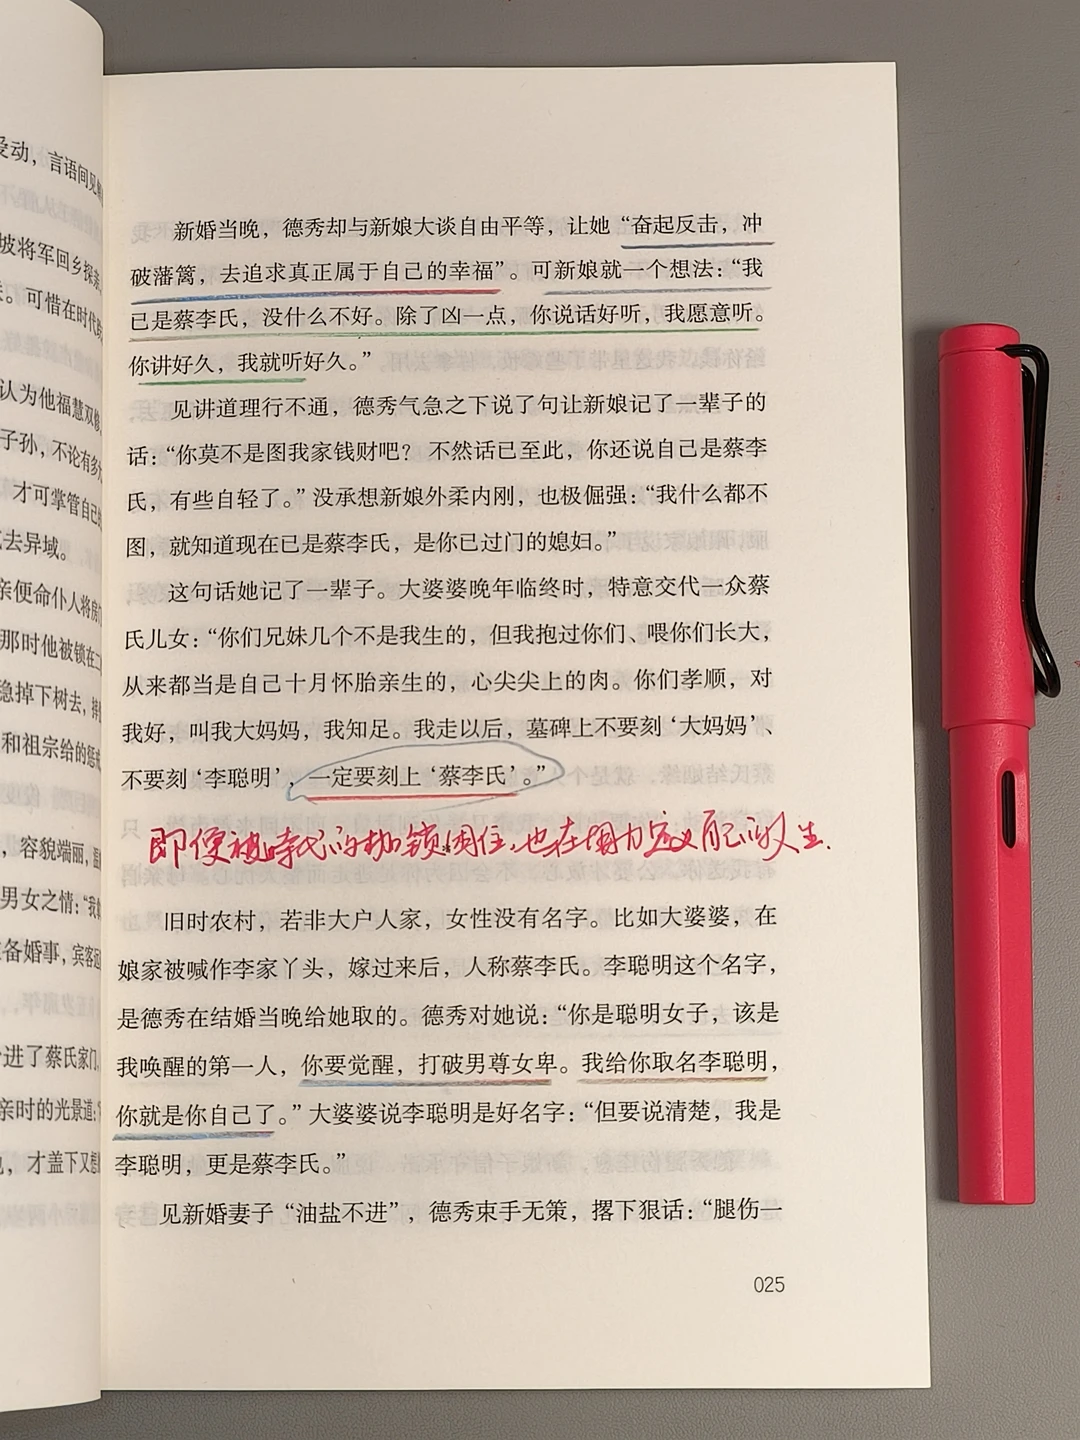 爱动，言语间见
坡将军回乡探亲
。可惜在时代
认为他福慧双修
子孙，不论有多
才可掌管自己
去异域。
亲便命仆人将房
那时他被锁在二
稳掉下树去，摔
和祖宗给的惩
，容貌端丽，温
男女之情：“我
备婚事，宾客
进了蔡氏家门
亲时的光景道：
，才盖下又
新婚当晚，德秀却与新娘大谈自由平等，让她“奋起反击，冲
破藩篱，去追求真正属于自己的幸福”。可新娘就一个想法：“我
已是蔡李氏，没什么不好。除了凶一点，你说话好听，我愿意听。
你讲好久，我就听好久。”
见讲道理行不通，德秀气急之下说了句让新娘记了一辈子的
话：“你莫不是图我家钱财吧？ 不然话已至此，你还说自己是蔡李
氏，有些自轻了。”没承想新娘外柔内刚，也极倔强：“我什么都不
图，就知道现在已是蔡李氏，是你已过门的媳妇。”
这句话她记了一辈子。大婆婆晚年临终时，特意交代一众蔡
氏儿女：“你们兄妹几个不是我生的，但我抱过你们、喂你们长大，
从来都当是自己十月怀胎亲生的，心尖尖上的肉。你们孝顺，对
我好，叫我大妈妈，我知足。我走以后，墓碑上不要刻‘大妈妈’、
不要刻‘李聪明’，一定要刻上‘蔡李氏’。”
即便被时代的枷锁困住，也在用力定义自己的人生．
旧时农村，若非大户人家，女性没有名字。比如大婆婆，在
娘家被喊作李家丫头，嫁过来后，人称蔡李氏。李聪明这个名字，
是德秀在结婚当晚给她取的。德秀对她说：“你是聪明女子，该是
我唤醒的第一人，你要觉醒，打破男尊女卑。我给你取名李聪明，
你就是你自己了。”大婆婆说李聪明是好名字：“但要说清楚，我是
李聪明，更是蔡李氏。”
见新婚妻子“油盐不进”，德秀束手无策，撂下狠话：“腿伤一
025